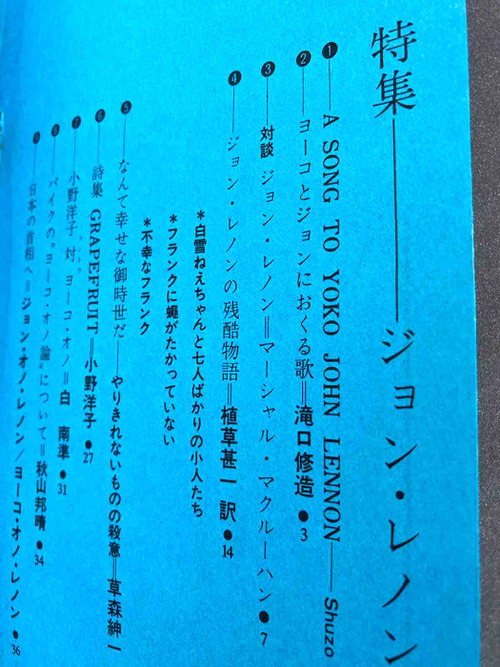 特集――ジョン・レノン
❶―A SONG TO YOKO JOHN LENNON―Shuzo
❷―ヨーコとジョンにおくる歌=滝口修造●3
❸―対談 ジョン・レノン=マーシャル・マクルーハン●7
❹―ジョン・レノンの残酷物語=植草甚一 訳●14
＊白雪ねえちゃんと七人ばかりの小人たち
＊フランクに蠅がたかっていない
＊不幸なフランク
❺―なんて幸せな御時世だ――やりきれないものの殺意=草森紳一
❻―詩集 GRAPEFRUIT=小野洋子●27
❼―小野洋子 対 ヨーコ・オノ=白 南準●31
❽―パイクの〝ヨーコ・オノ論〟について=秋山邦晴●34
日本の首相へ=ジョン・オノ・レノン/ヨーコ・オノ・レノン●36